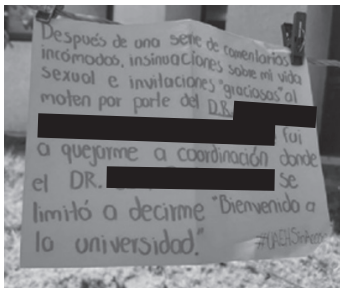 Después de una serie de comentarios
incómodos, insinuaciones sobre mi vida
sexual e invitaciones "graciosas" al
moten por parte del D.R.
fui
a quejarme a coordinación donde
el DR. se
limitó a decirme "Bienvenido a
la universidad."